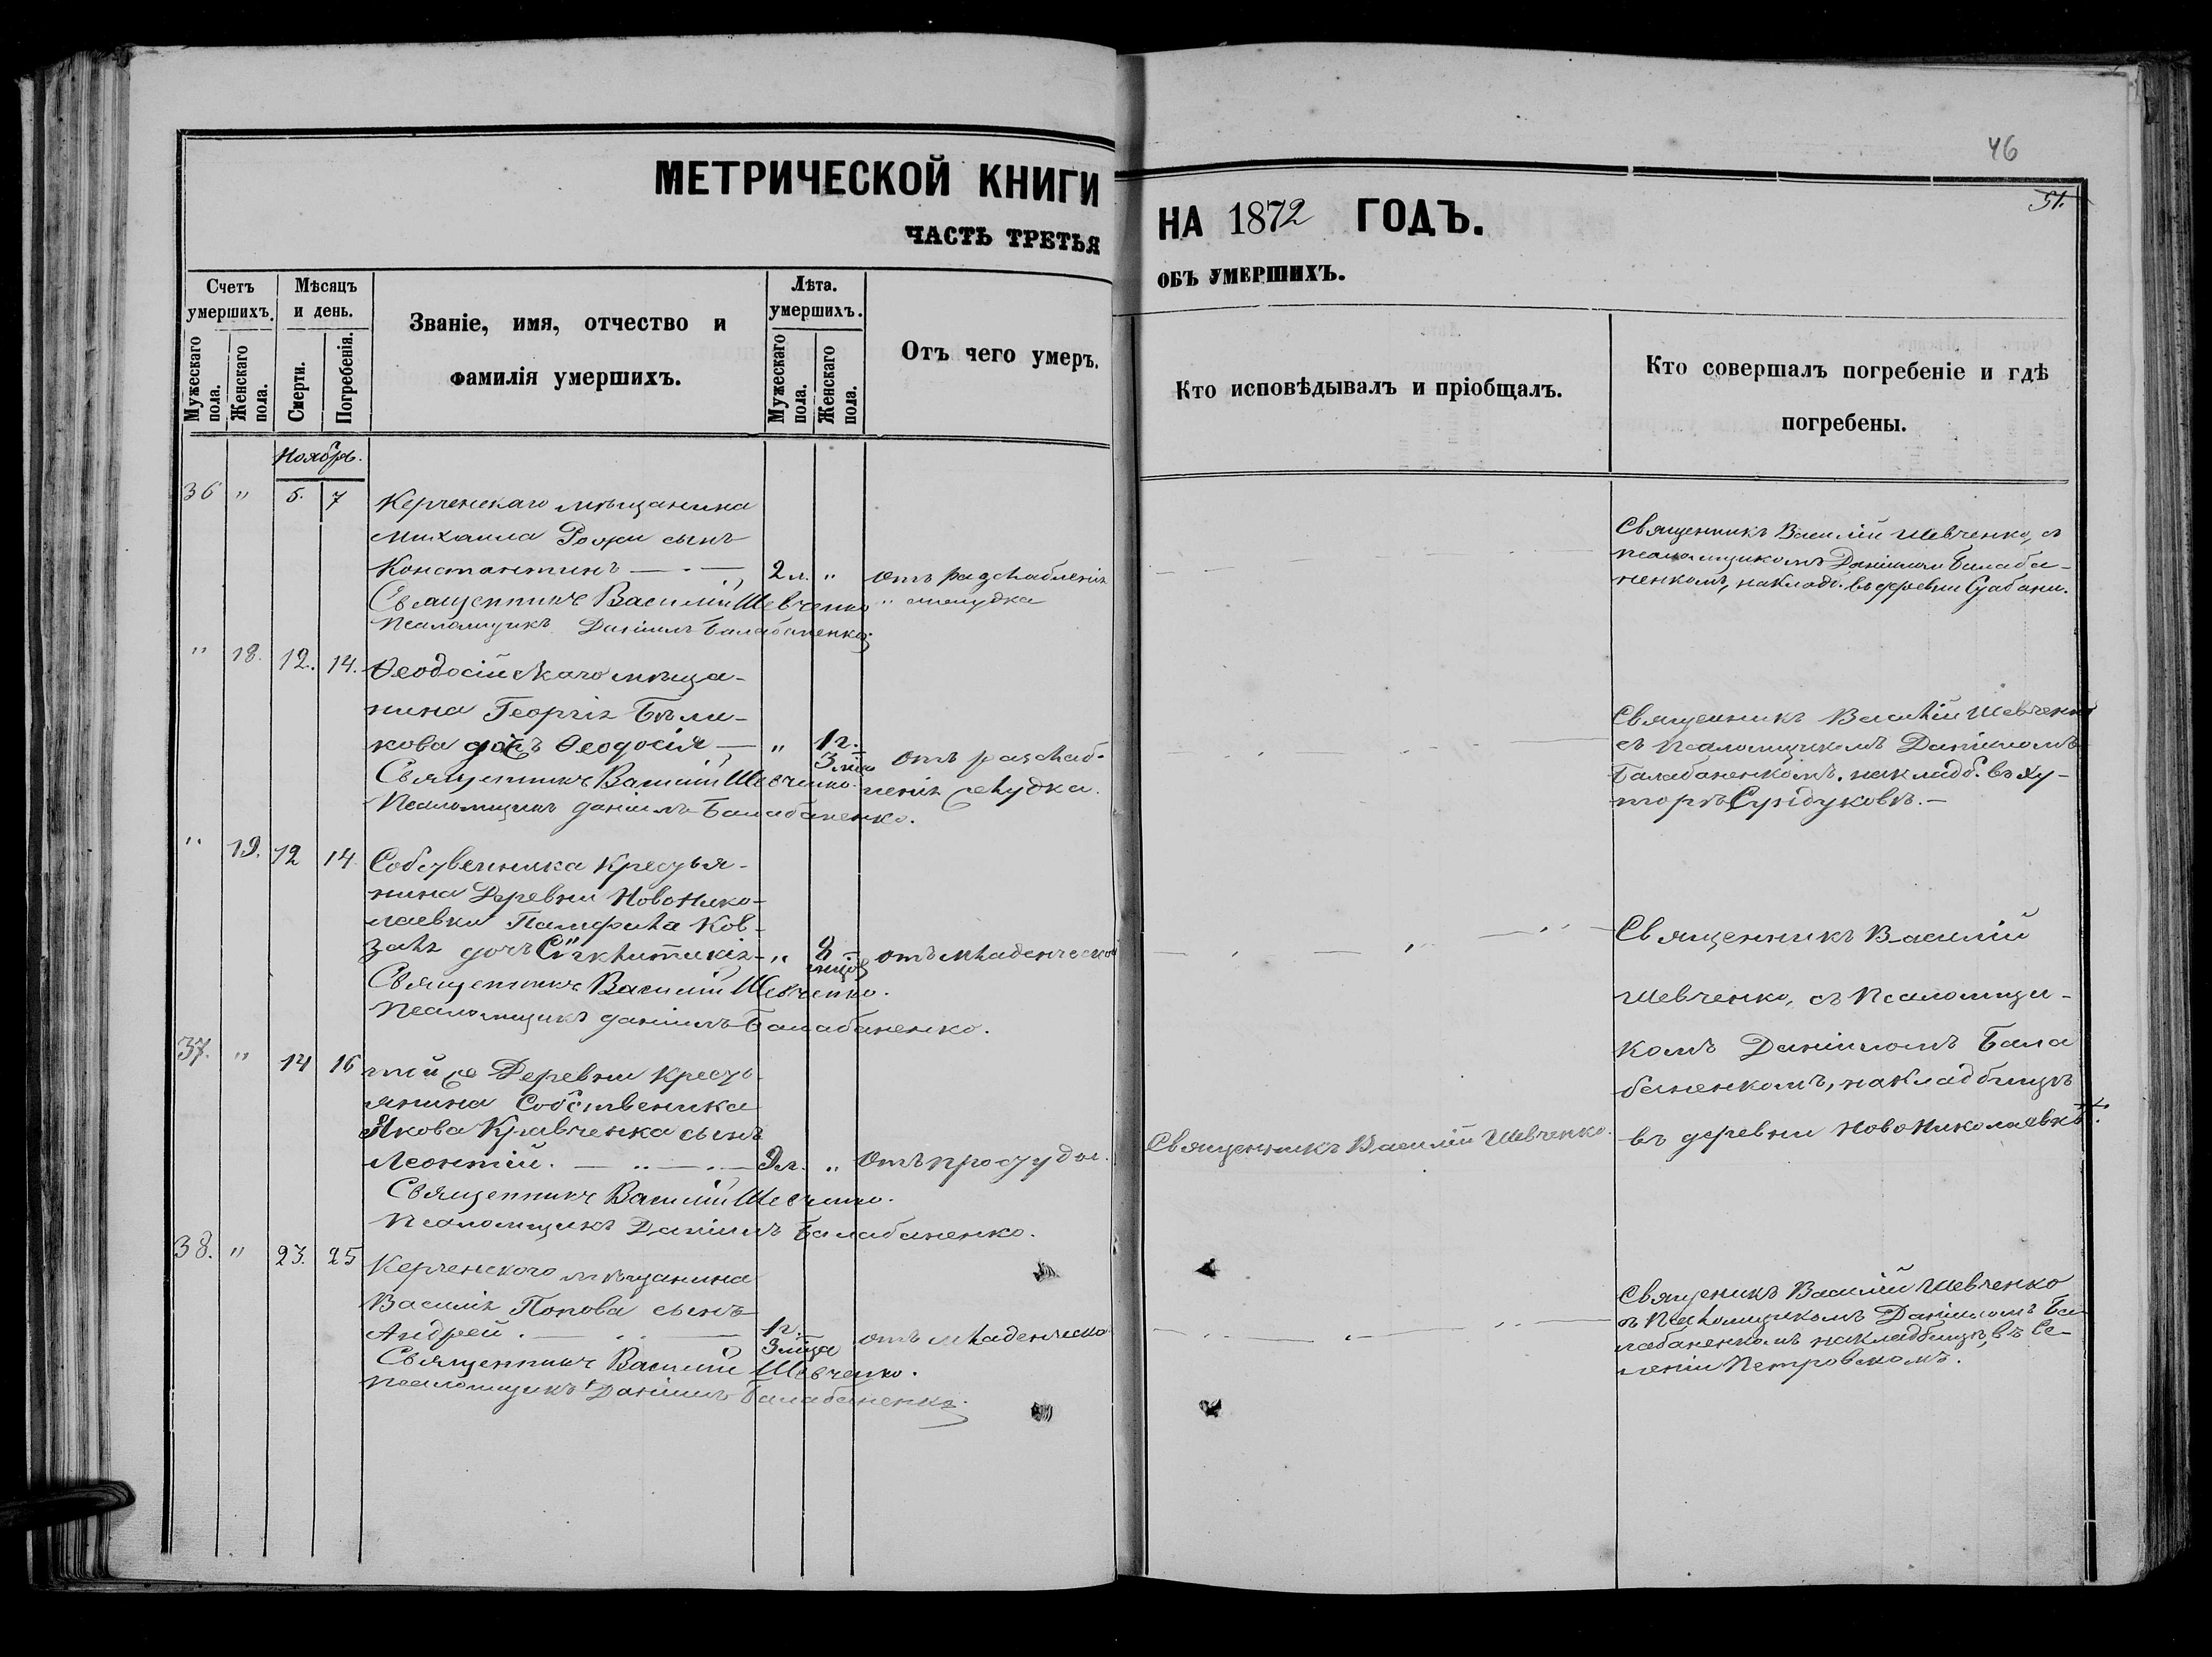 46
51.
МЕТРИЧЕСКОЙ КНИГИ
НА 1872 ГОДЪ.
ЧАСТЬ ТРЕТЬЯ
ОБЪ УМЕРШИХЪ.
Счетъ умершихъ.
Мужескаго пола.
Женскаго пола.
Мѣсяцъ и день.
Смерти.
Погребенія.
Званіе, имя, отчество и
фамилія умершихъ.
Лѣта. умершихъ.
Мужескаго пола.
Женскаго пола.
Отъ чего умеръ.
Кто исповѣдывалъ и пріобщалъ.
Кто совершалъ погребеніе и гдѣ
погребены.
Ноябрь.
36 " 5. 7 Керченскаго мѣщанина
Михаила сынъ
Константинъ 2 л. " отъ разслабленія
" желудка
Священникъ Василій Шевченко
Псаломщикъ Даніилъ Балабаненко
Священникъ Василій Шевченко, съ
псаломщикомъ Даніиломъ Балаба-
ненкомъ, на кладб. въ деревни
" 18. 12. 14. Ѳеодосійскаго мѣща-
нина Георгія Бѣли-
кова дочь Ѳеодосія " 1 г.
3 отъ разслаб-
ленія желудка.
Священникъ Василій Шевченко.
Псаломщикъ Даніилъ Балабаненко.
Священникъ Василій Шевченко
съ Псаломщикомъ Даніиломъ
Балабаненкомъ, на кладб. въ ху-
торѣ
" 19. 12 14. Собственника Крестья-
нина Деревни Новонико-
лаевки Памфила Ков-
заля дочь " 8 отъ младенческой
Священникъ Василій Шевченко.
Псаломщикъ Даніилъ Балабаненко.
Священникъ Василій
Шевченко, съ Псаломщи-
комъ Даніиломъ Бала
баненкомъ, на кладбищѣ
въ деревни Новониколаевкѣ.
37. " 14 16 той же Деревни Кресть
янина Собственика
Якова Кравченка сынъ
Леонтій. 9 л. " Отъ простуды.
Священникъ Василій Шевченко.
Священникъ Василій Шевченко.
Псаломщикъ Даніилъ Балабаненко.
38. " 23. 25 Керченского мѣщанина
Василія Попова сынъ
Андрей. 1 г.
3 мѣсяца отъ младенческо
Священникъ Василій Шевченко.
Псаломщикъ Даніилъ Балабаненко.
Священикъ Василій Шевченко
съ Псаломщикомъ Даніиломъ Ба-
лабаненкомъ на кладбищѣ, въ Се-
леніи Петровскомъ.